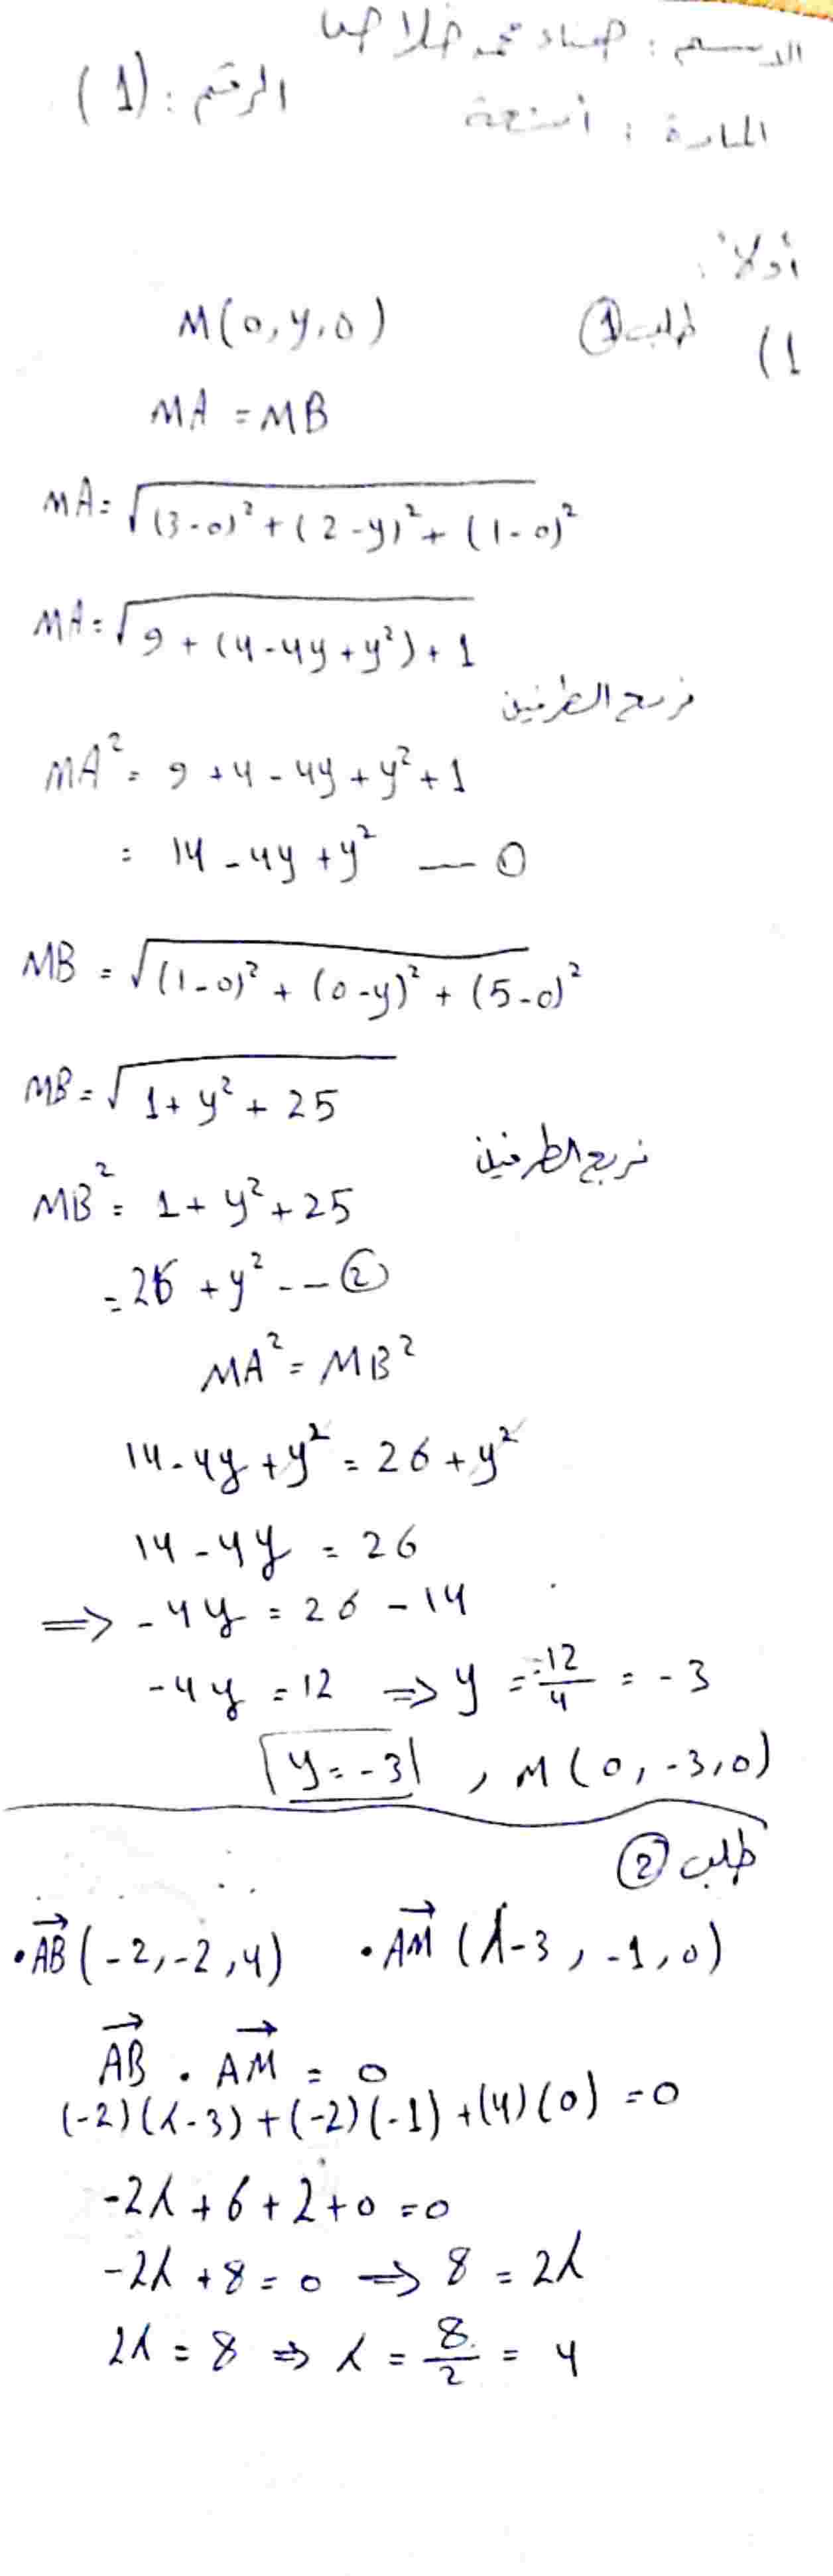 الاسم : محمد
المادة : أشعة
الرقم : (1)
أولاً :
(1 طلب ①
M(0,y,0)
MA = MB
MA = √(3-0)² + (2-y)² + (1-0)²
MA = √9 + (4-4y+y²) + 1
نربع الطرفين
MA² = 9 + 4 - 4y + y² + 1
= 14 - 4y + y² — ①
MB = √(1-0)² + (0-y)² + (5-0)²
MB = √1 + y² + 25
نربع الطرفين
MB² = 1 + y² + 25
= 26 + y² -- ②
MA² = MB²
14 - 4y + y² = 26 + y²
14 - 4y = 26
⇒ -4y = 26 - 14
-4y = 12 ⇒ y = -12/4 = -3
y = -3 , M(0, -3, 0)
طلب ②
• AB→ (-2, -2, 4) • AM→ (λ-3, -1, 0)
AB→ . AM→ = 0
(-2)(λ-3) + (-2)(-1) + (4)(0) = 0
-2λ + 6 + 2 + 0 = 0
-2λ + 8 = 0 ⇒ 8 = 2λ
2λ = 8 ⇒ λ = 8/2 = 4